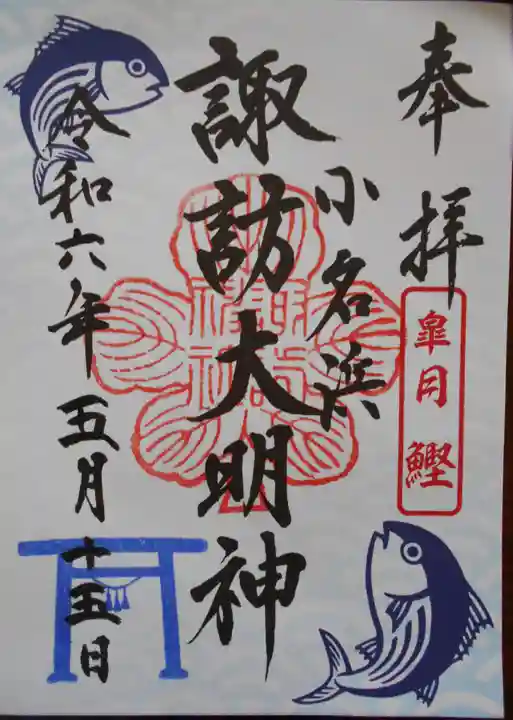 奉拝
皐月 鰹
小名浜
諏訪大明神
令和六年 五月 十五日